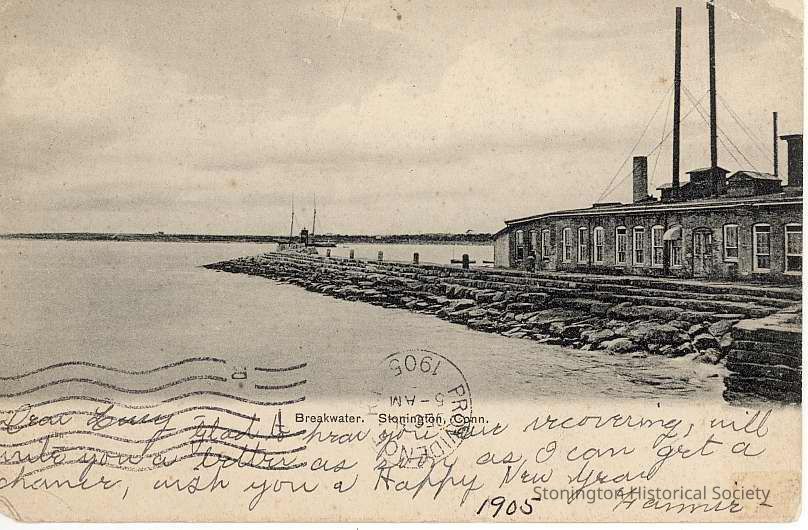 1905
5-AM
PROVIDENC
Breakwater. Stonington, Conn.
Dear Lucy glad to hear you are recovering, will
write you a letter as soon as I can get a
chance, wish you a Happy New Year
1905
Stonington Historical Society